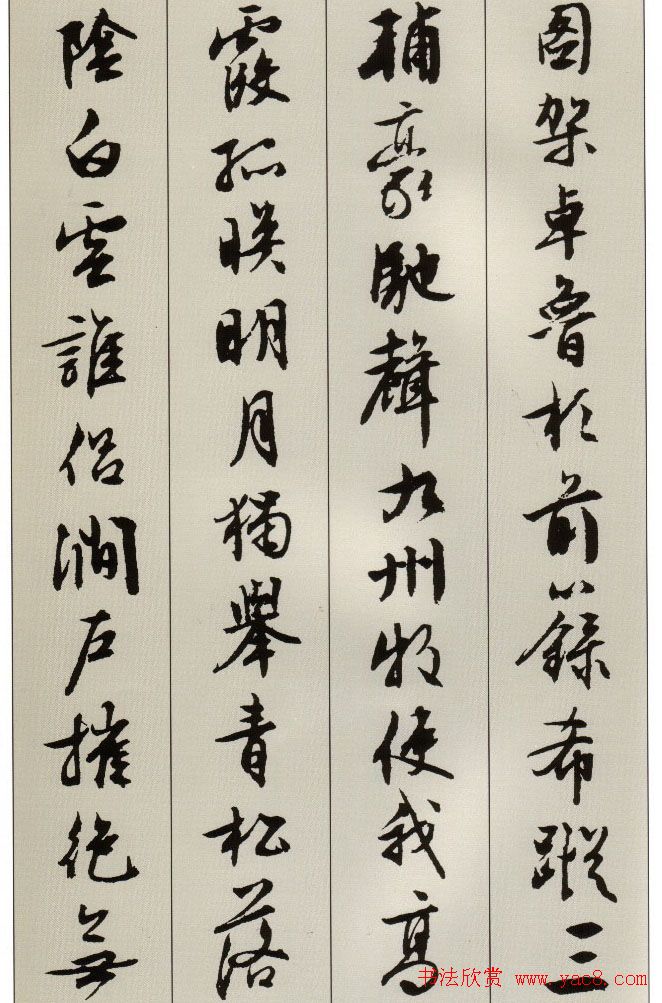 圖架卓魯於前籙希蹤三
輔豪馳聲九州牧使我高
霞孤暎明月獨舉青松落
陰白雲誰侶澗戶摧絕無
书法欣赏 www.yac8.com